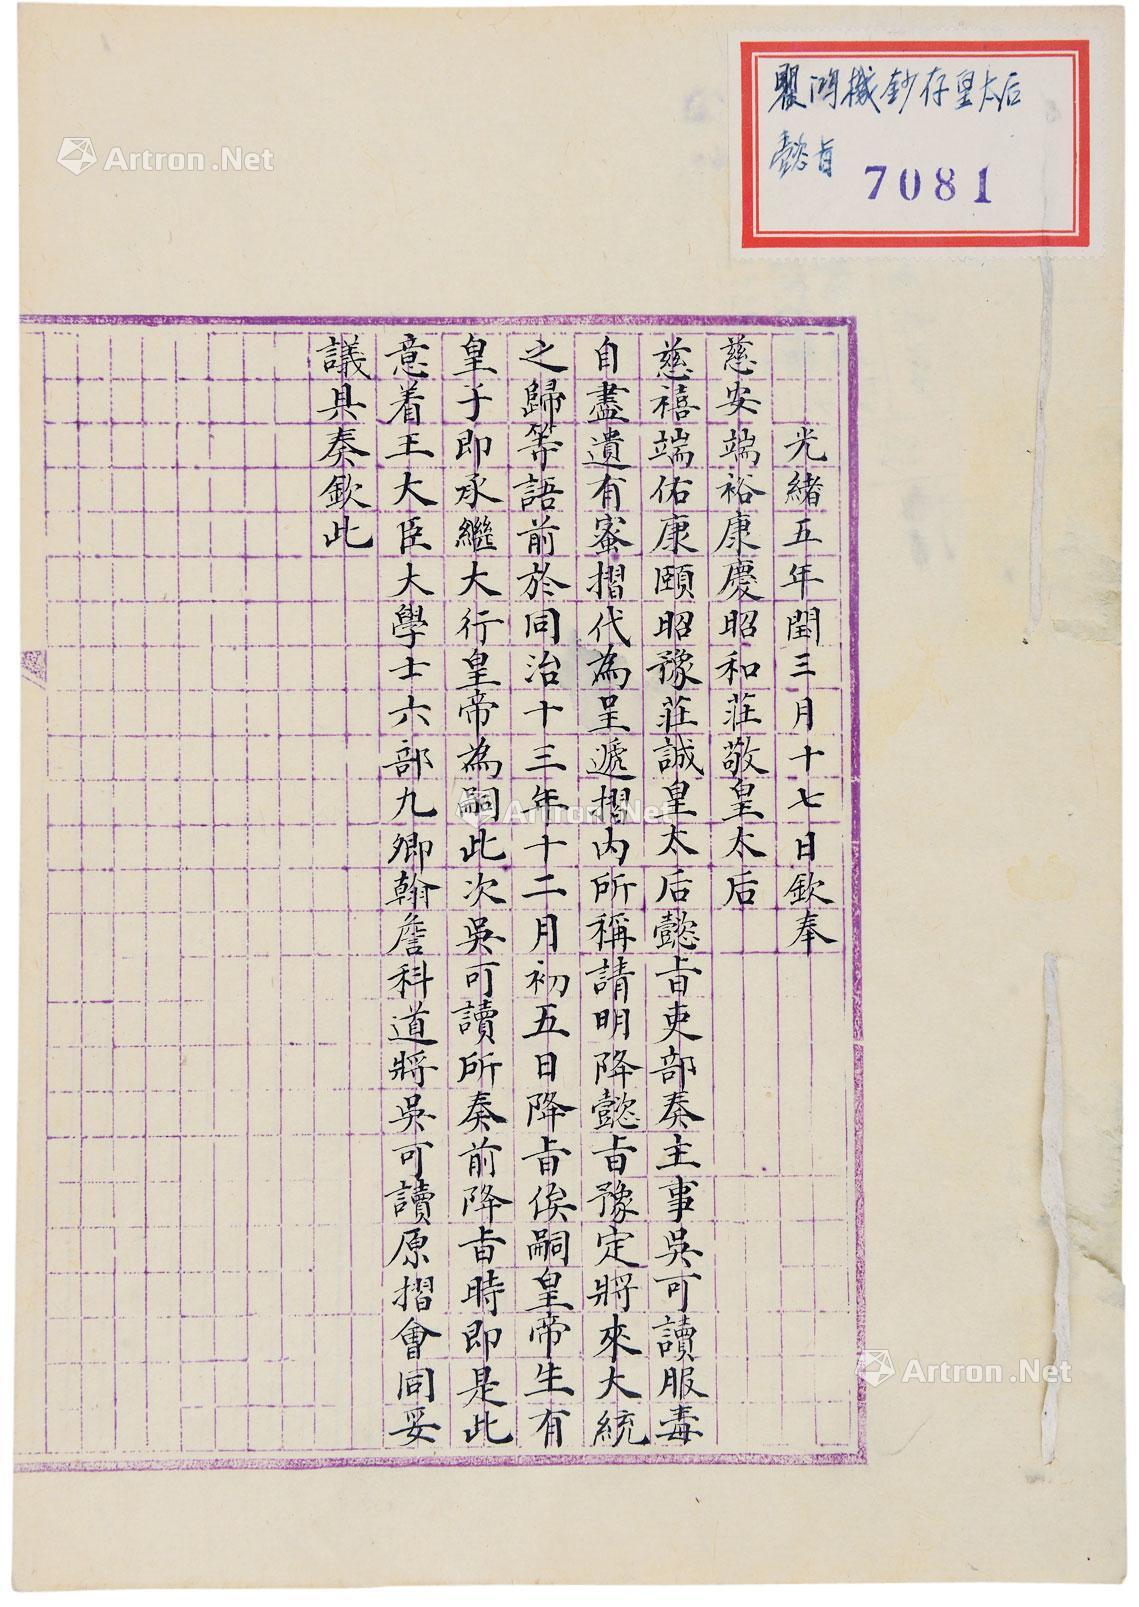 瞿鴻禨鈔存皇太后
懿旨
7081
光緒五年閏三月十七日欽奉
慈安端裕康慶昭和莊敬皇太后
慈禧端佑康頤昭豫莊誠皇太后懿旨吏部奏主事吳可讀服毒
自盡遺有密摺代為呈遞摺內所稱請明降懿旨豫定將來大統
之歸等語前於同治十三年十二月初五日降旨俟嗣皇帝生有
皇子即承繼大行皇帝為嗣此次吳可讀所奏前降旨時即是此
意着王大臣大學士六部九卿翰詹科道將吳可讀原摺會同妥
議具奏欽此
Artron.Net
Artron.Net
Artron.Net